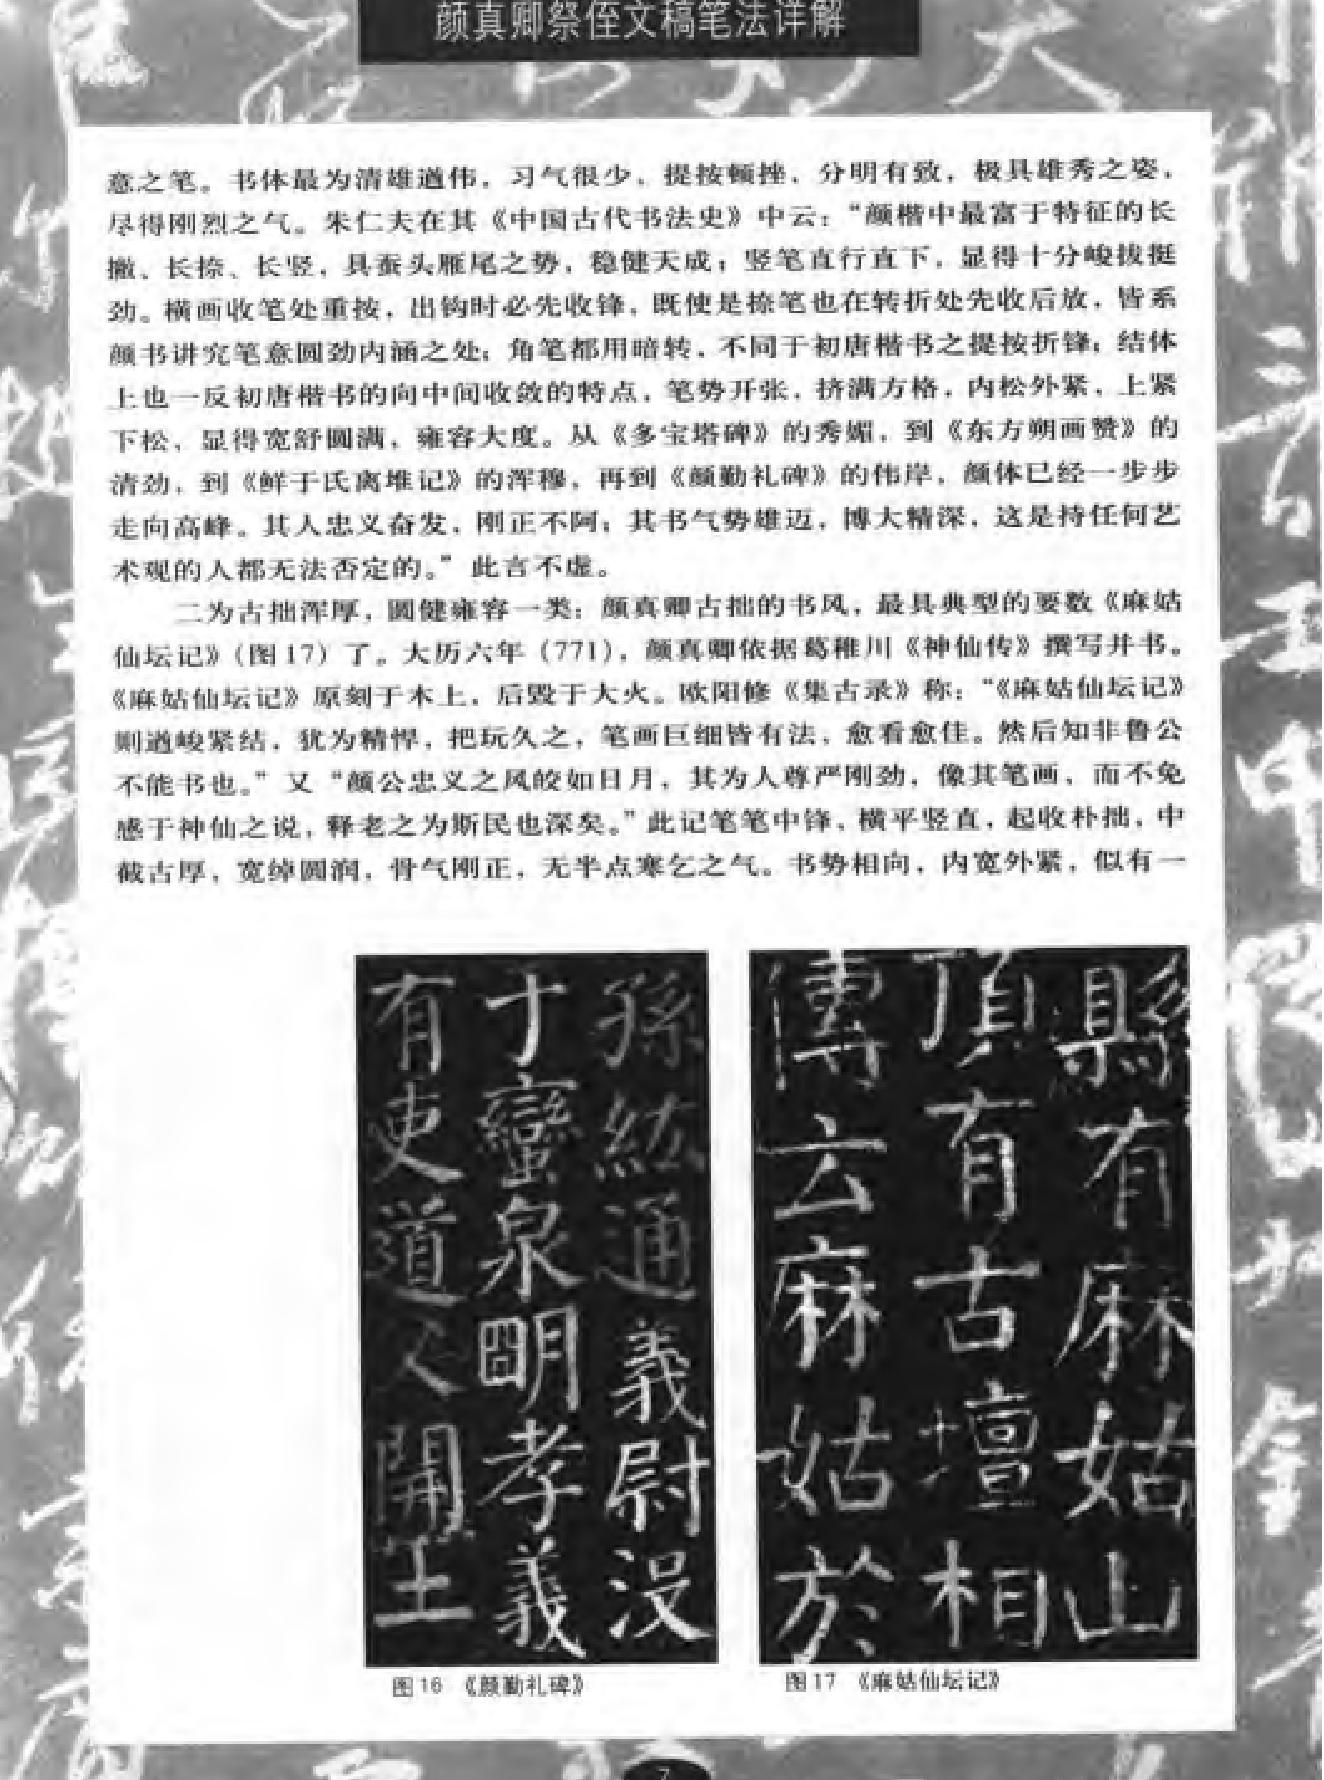 颜真卿祭侄文稿笔法详解
意之笔。书体最为清雄遒伟，习气很少，提按顿挫，分明有致，极具雄秀之姿，
尽得刚烈之气。朱仁夫在其《中国古代书法史》中云：“颜楷中最富于特征的长
撇、长捺、长竖，具蚕头雁尾之势，稳健天成；竖笔直行直下，显得十分峻拔挺
劲。横画收笔处重按，出钩时必先收锋，既使是捺笔也在转折处先收后放，皆系
颜书讲究笔意圆劲内涵之处；角笔都用暗转，不同于初唐楷书之提按折锋；结体
上也一反初唐楷书的向中间收敛的特点，笔势开张，挤满方格，内松外紧，上紧
下松，显得宽舒圆满，雍容大度。从《多宝塔碑》的秀媚，到《东方朔画赞》的
清劲，到《鲜于氏离堆记》的浑穆，再到《颜勤礼碑》的伟岸，颜体已经一步步
走向高峰。其人忠义奋发，刚正不阿；其书气势雄迈，博大精深，这是持任何艺
术观的人都无法否定的。”此言不虚。
二为古拙浑厚，圆健雍容一类：颜真卿古拙的书风，最具典型的要数《麻姑
仙坛记》（图17）了。大历六年（771），颜真卿依据葛稚川《神仙传》撰写并书。
《麻姑仙坛记》原刻于木上，后毁于大火。欧阳修《集古录》称：“《麻姑仙坛记》
则遒峻紧结，犹为精悍，把玩久之，笔画巨细皆有法，愈看愈佳。然后知非鲁公
不能书也。”又“颜公忠义之风皎如日月，其为人尊严刚劲，像其笔画，而不免
感于神仙之说，释老之为斯民也深矣。”此记笔笔中锋，横平竖直，起收朴拙，中
截古厚，宽绰圆润，骨气刚正，无半点寒乞之气。书势相向，内宽外紧，似有一
孫紘通義尉没
于蠻泉明孝義
有吏道人開王
縣有麻姑山
頂有古壇相
傳云麻姑於
图16 《颜勤礼碑》
图17 《麻姑仙坛记》
7